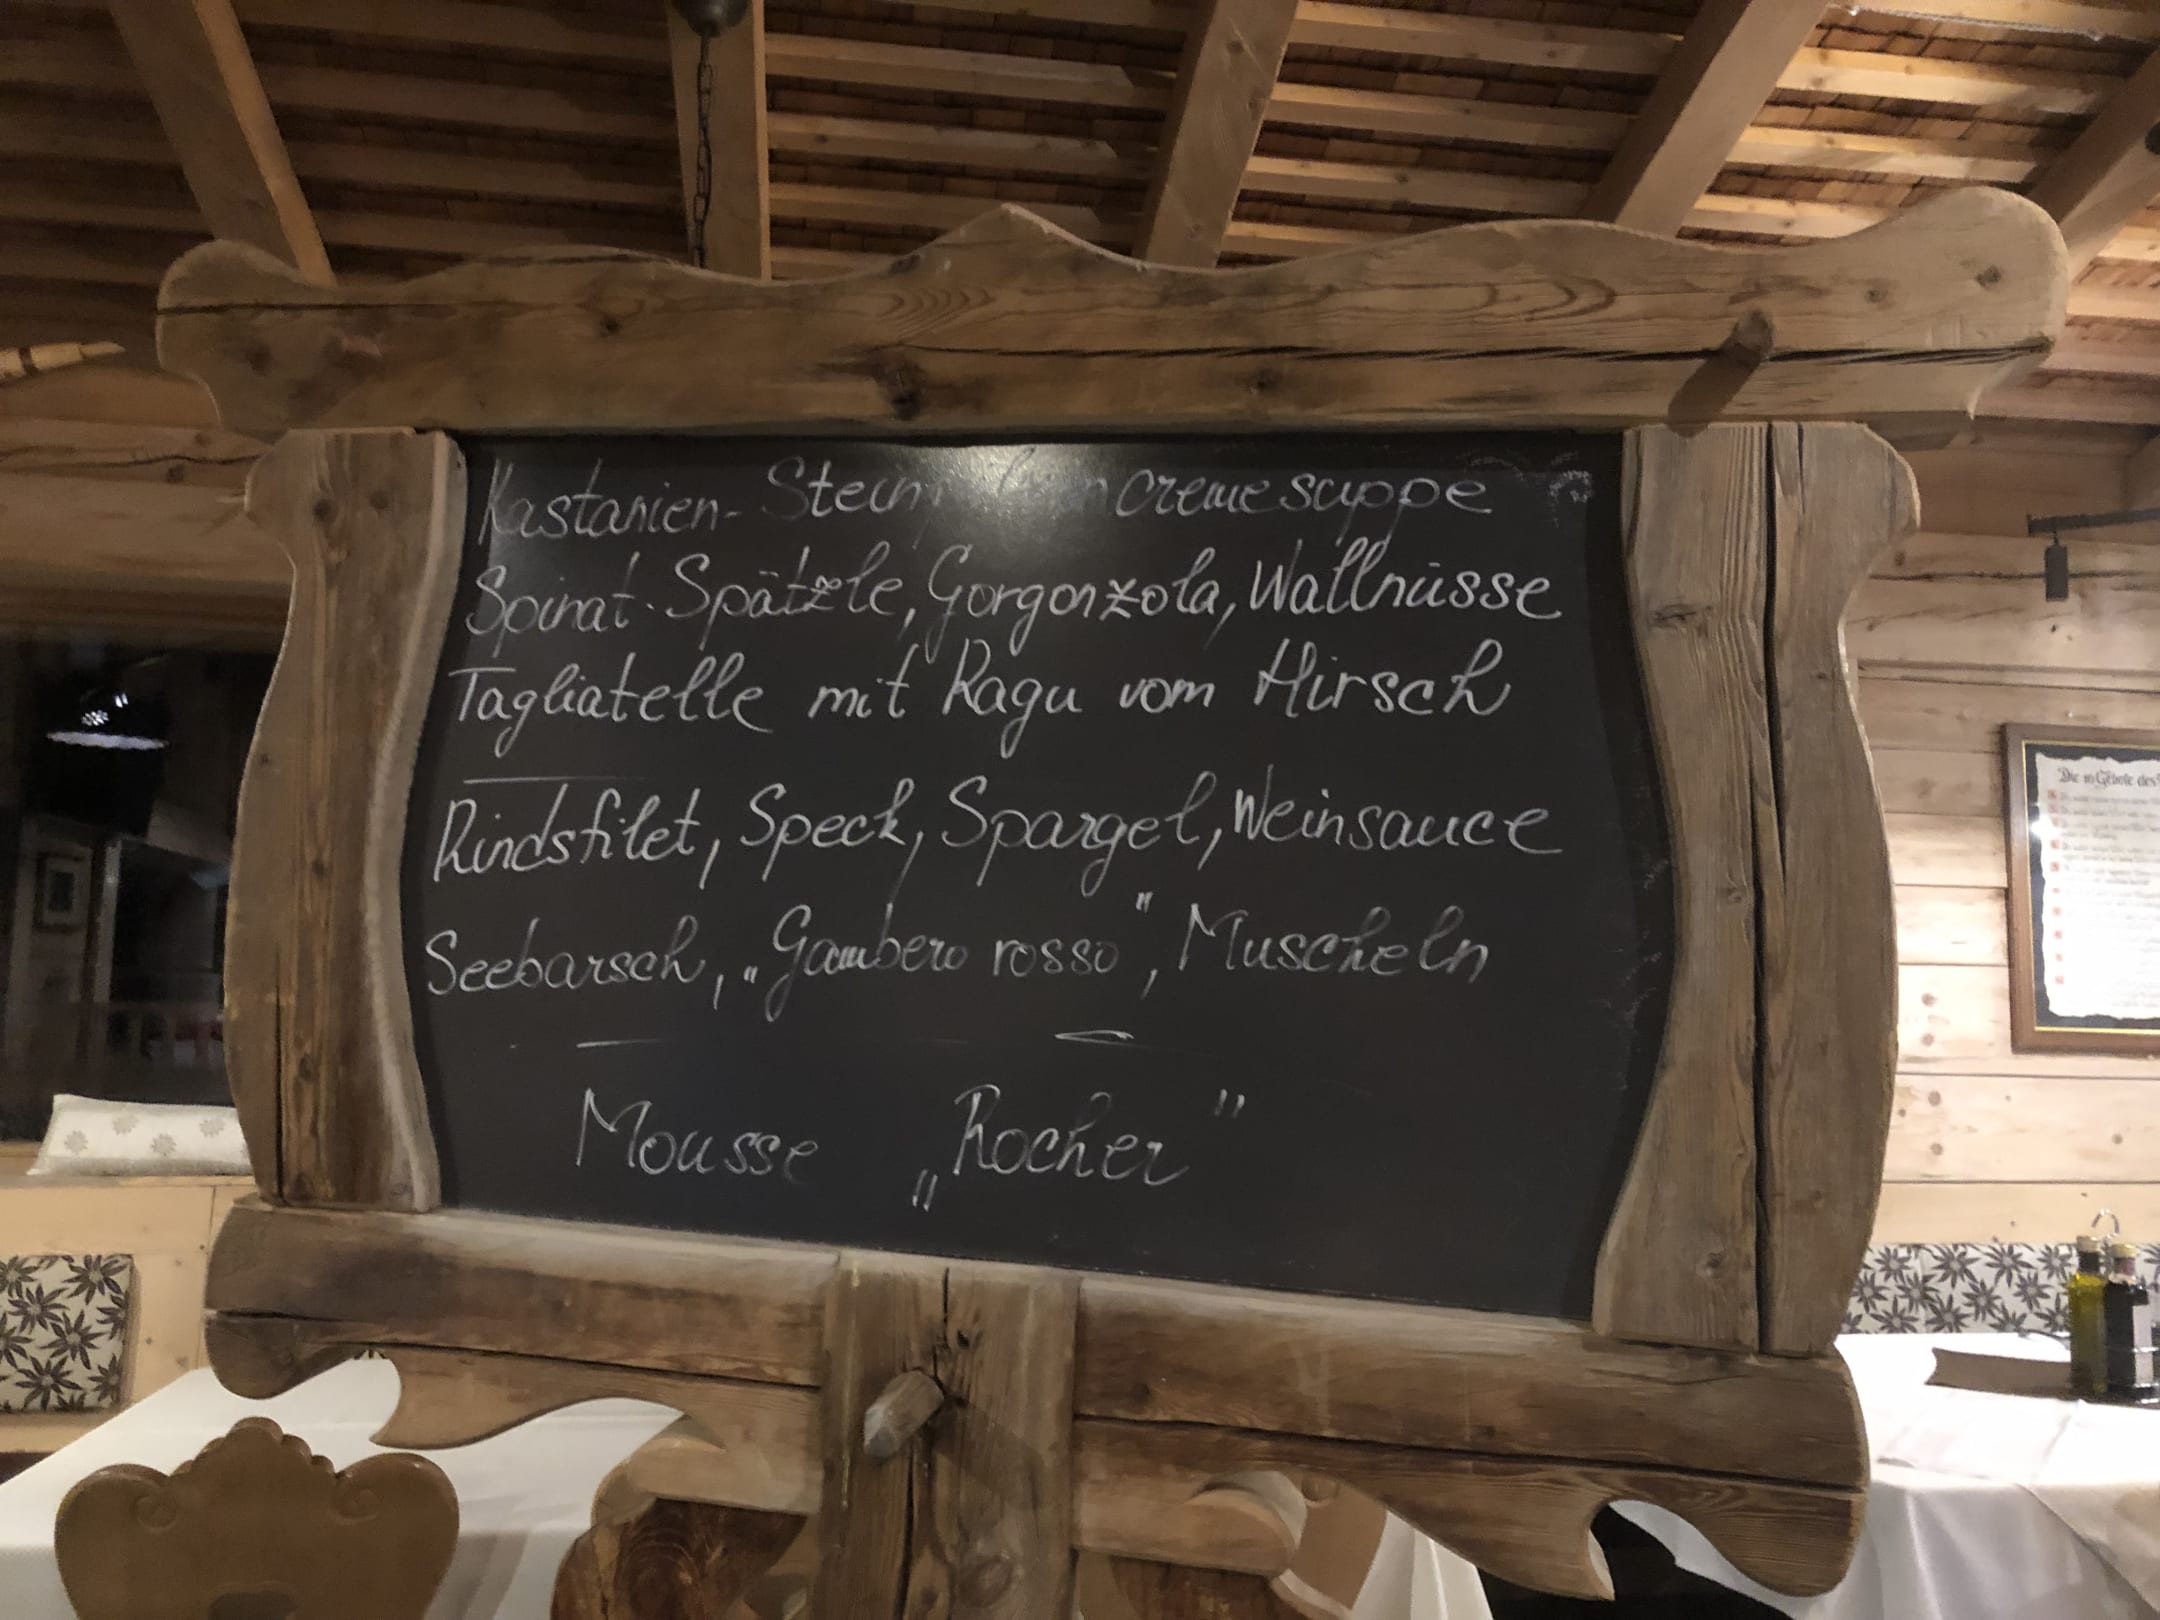 Kastanien- cremesuppe
Spinat-Spätzle, Gorgonzola, Wallnüsse
Tagliatelle mit Ragu vom Hirsch
Rindsfilet, Speck, Spargel, Weinsauce
Seebarsch, „Gambero rosso", Muscheln
Mousse „Rocher"
Die 10 Gebote des